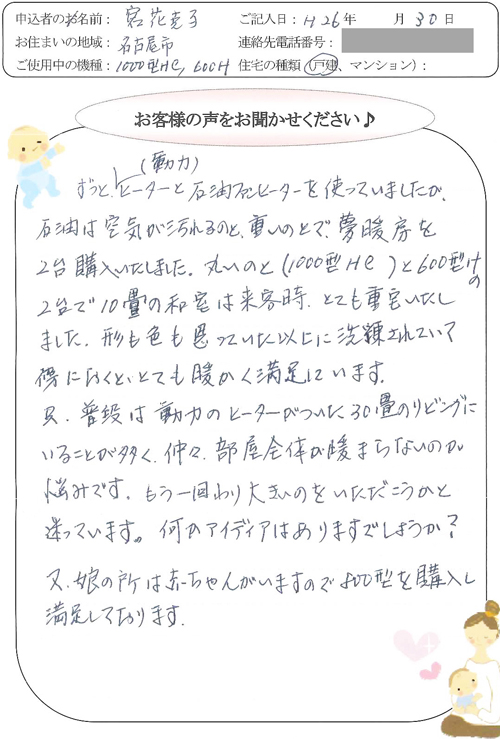 申込者のお名前： 宮花克子 ご記入日：H26年 月30日
お住まいの地域：名古屋市 連絡先電話番号：
ご使用中の機種：1000型He, 600H 住宅の種類（戸建、マンション）：
お客様の声をお聞かせください♪
(動力)
ずっと、ヒーターと石油ファンヒーターを使っていましたが、
石油は空気が汚れるのと、重いのとで夢暖房を
2台購入いたしました。丸いのと(1000型He)と600型Hの
2台で10畳の和室は来客時、とても重宝いたし
ました。形も色も思っていた以上に洗練されていて
傍におくと、とても暖かく満足しています。
又、普段は動力のヒーターがついた30畳のリビングに
いることが多く、仲々、部屋全体が暖まらないのが
悩みです。もう一回わり大きいのをいただこうかと
迷っています。何かアイディアはありますでしょうか？
又、娘の所は赤ちゃんがいますので800型を購入し
満足しております。